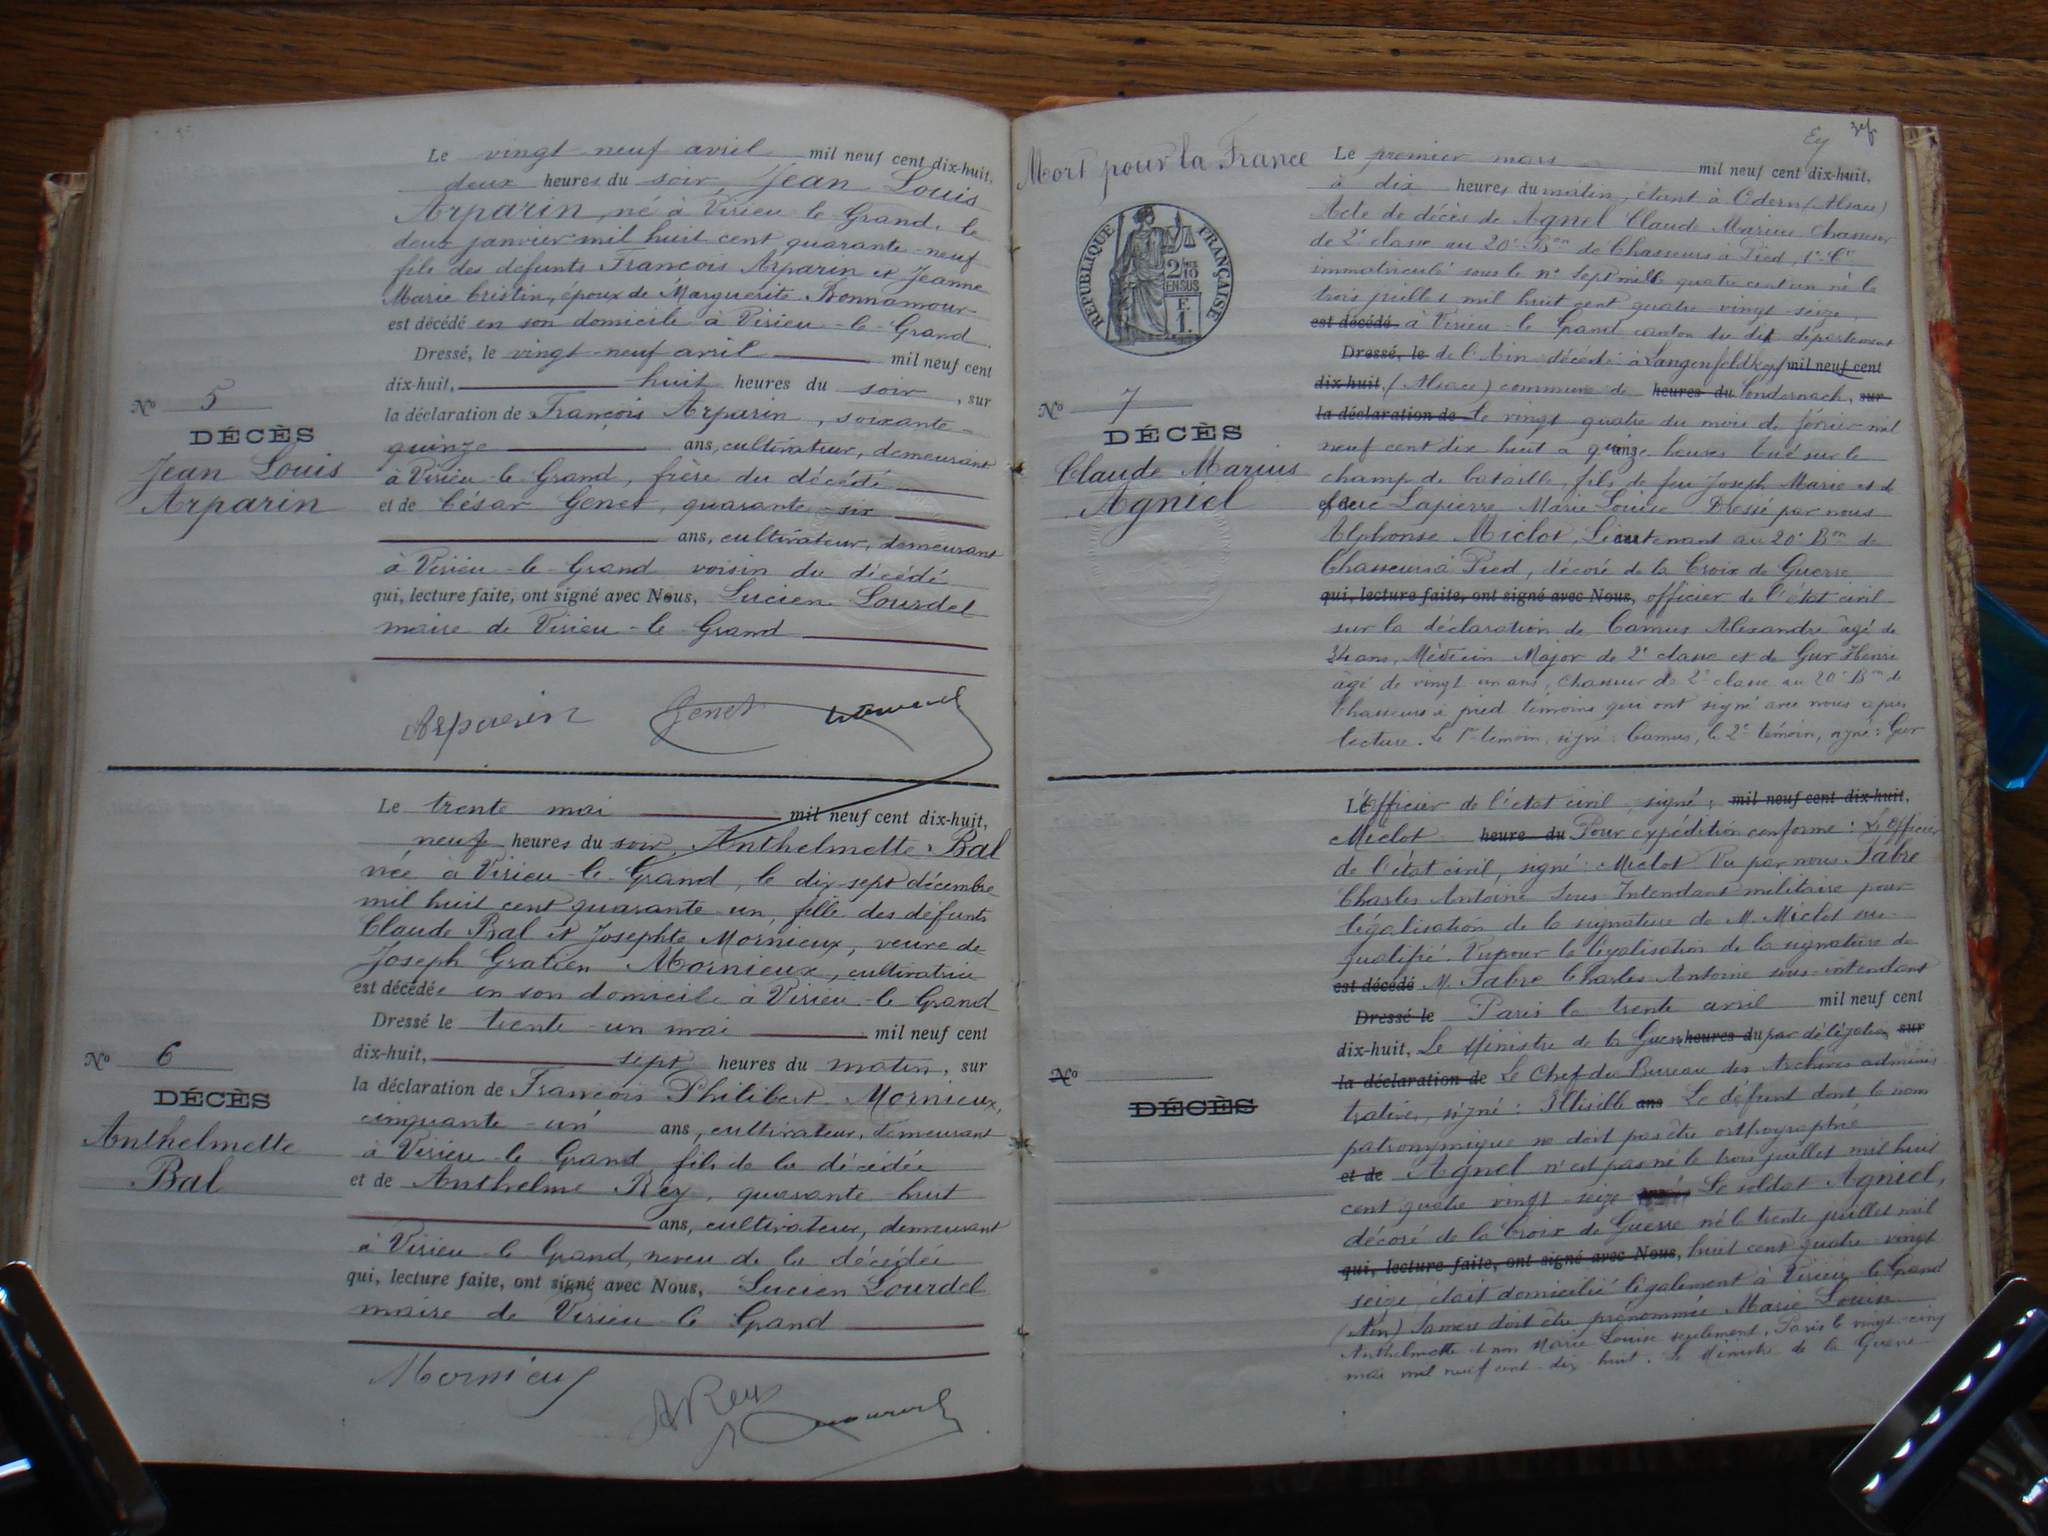 Le vingt neuf avril mil neuf cent dix-huit,
deux heures du soir, Jean Louis
Arparin, né à Virieu le Grand, le
deux janvier mil huit cent quarante-neuf
fils des defunts François Arparin et Jeanne
Marie Cristin, époux de Marguerite Bonnamour
est décédé en son domicile à Virieu-le-Grand.
Dressé, le vingt-neuf avril mil neuf cent
dix-huit, huit heures du soir, sur
la déclaration de François Arparin, soixante-
quinze ans, cultivateur, demeurant
à Virieu-le Grand, frère du décédé
et de César Genet, quarante-six
ans, cultivateur, demeurant
à Virieu-le-Grand voisin du décédé
qui, lecture faite, ont signé avec Nous, Lucien Lourdel
maire de Virieu-le-Grand
Nº 5
DÉCÈS
Jean Louis
Arparin
Arparin Genet
Le trente mai mil neuf cent dix-huit,
neuf heures du soir Anthelmette Bal
née à Virieu-le-Grand, le dix-sept décembre
mil huit cent quarante-un, fille des défunts
Claude Bal et Josephte Mornieux, veuve de
Joseph Gratien Mornieux, cultivatrice
est décédée en son domicile à Virieu-le-Grand
Dressé le trente-un mai mil neuf cent
dix-huit, sept heures du matin, sur
la déclaration de François Philibert Mornieux,
cinquante-un ans, cultivateur, demeurant
à Virieu-le Grand fils de la décédée
et de Anthelme Rey, quarante-huit
ans, cultivateur, demeurant
à Virieu-le Grand, neveu de la décédée
qui, lecture faite, ont signé avec Nous, Lucien Lourdel
maire de Virieu-le Grand
Nº 6
DÉCÈS
Anthelmette
Bal
Mornieux
A Rey
Mort pour la France
RÉPUBLIQUE FRANÇAISE
2/10
EN SUS
Nº 7
DÉCÈS
Claude Marius
Agniel
Le premier mars mil neuf cent dix-huit,
à dix heures du matin, étant à Odern (Alsace)
Acte de décès de Agnel Claude Marius Chasseur
de 2e classe au 20e Bon de Chasseurs à Pied, 1e Cie
immatriculé sous le nº sept mille quatre cent un né le
trois juillet mil huit cent quatre-vingt-seize,
est décédé à Virieu-le Grand canton du dit département
Dressé, le de l'Ain décédé à Langenfeldkopf mil neuf cent
dix-huit, (Alsace) commune de heures du Sondernach, sur
la déclaration de le vingt quatre du mois de février mil
neuf cent dix huit à quinze heures tué sur le
champ de bataille, fils de feu Joseph Marie et de
Lapierre Marie Louise Dressé par nous
Alphonse Miclot, Lieutenant au 20e Bon de
Chasseurs à Pied, décoré de la Croix de Guerre
qui, lecture faite, ont signé avec Nous, officier de l'état civil
sur la déclaration de Camus Alexandre âgé de
34 ans, Médecin Major de 2e classe et de Gur Henri
âgé de vingt un ans, Chasseur de 2e classe au 20e Bon de
Chasseurs à pied témoins qui ont signé avec nous après
lecture. Le 1er témoin, signé: Camus, le 2e témoin, signé: Gur
L'Officier de l'état civil, signé: mil neuf cent dix-huit,
Miclot heure du Pour expédition conforme: L'Officier
de l'état civil, signé: Miclot Vu par nous Fabre
Charles Antoine Sous Intendant militaire pour
légalisation de la signature de M. Miclot sus-
qualifié. Vu pour la légalisation de la signature de
est décédé M. Fabre Charles Antoine sous-intendant
Dressé le Paris le trente avril mil neuf cent
dix-huit, Le Ministre de la Guerre heures du par délégation sur
la déclaration de Le Chef du Bureau des Archives adminis-
tratives, signé: Illisible ans Le défunt dont le nom
patronymique ne doit pas être orthographié
et de Agnel n'est pas né le trois juillet mil huit
cent quatre vingt-seize Le soldat Agniel,
décoré de la Croix de Guerre né le trente juillet mil
qui, lecture faite, ont signé avec Nous, huit cent quatre-vingt
seize, était domicilié légalement à Virieu le Grand
(Ain) Sa mère doit être prénommée Marie Louise
Anthelmette et non Marie Louise seulement. Paris le vingt-cinq
mai mil neuf cent dix huit. Le Ministre de la Guerre
Nº
DÉCÈS